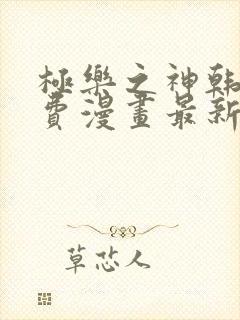 極樂之神韩
費漫畫最新
草芯人